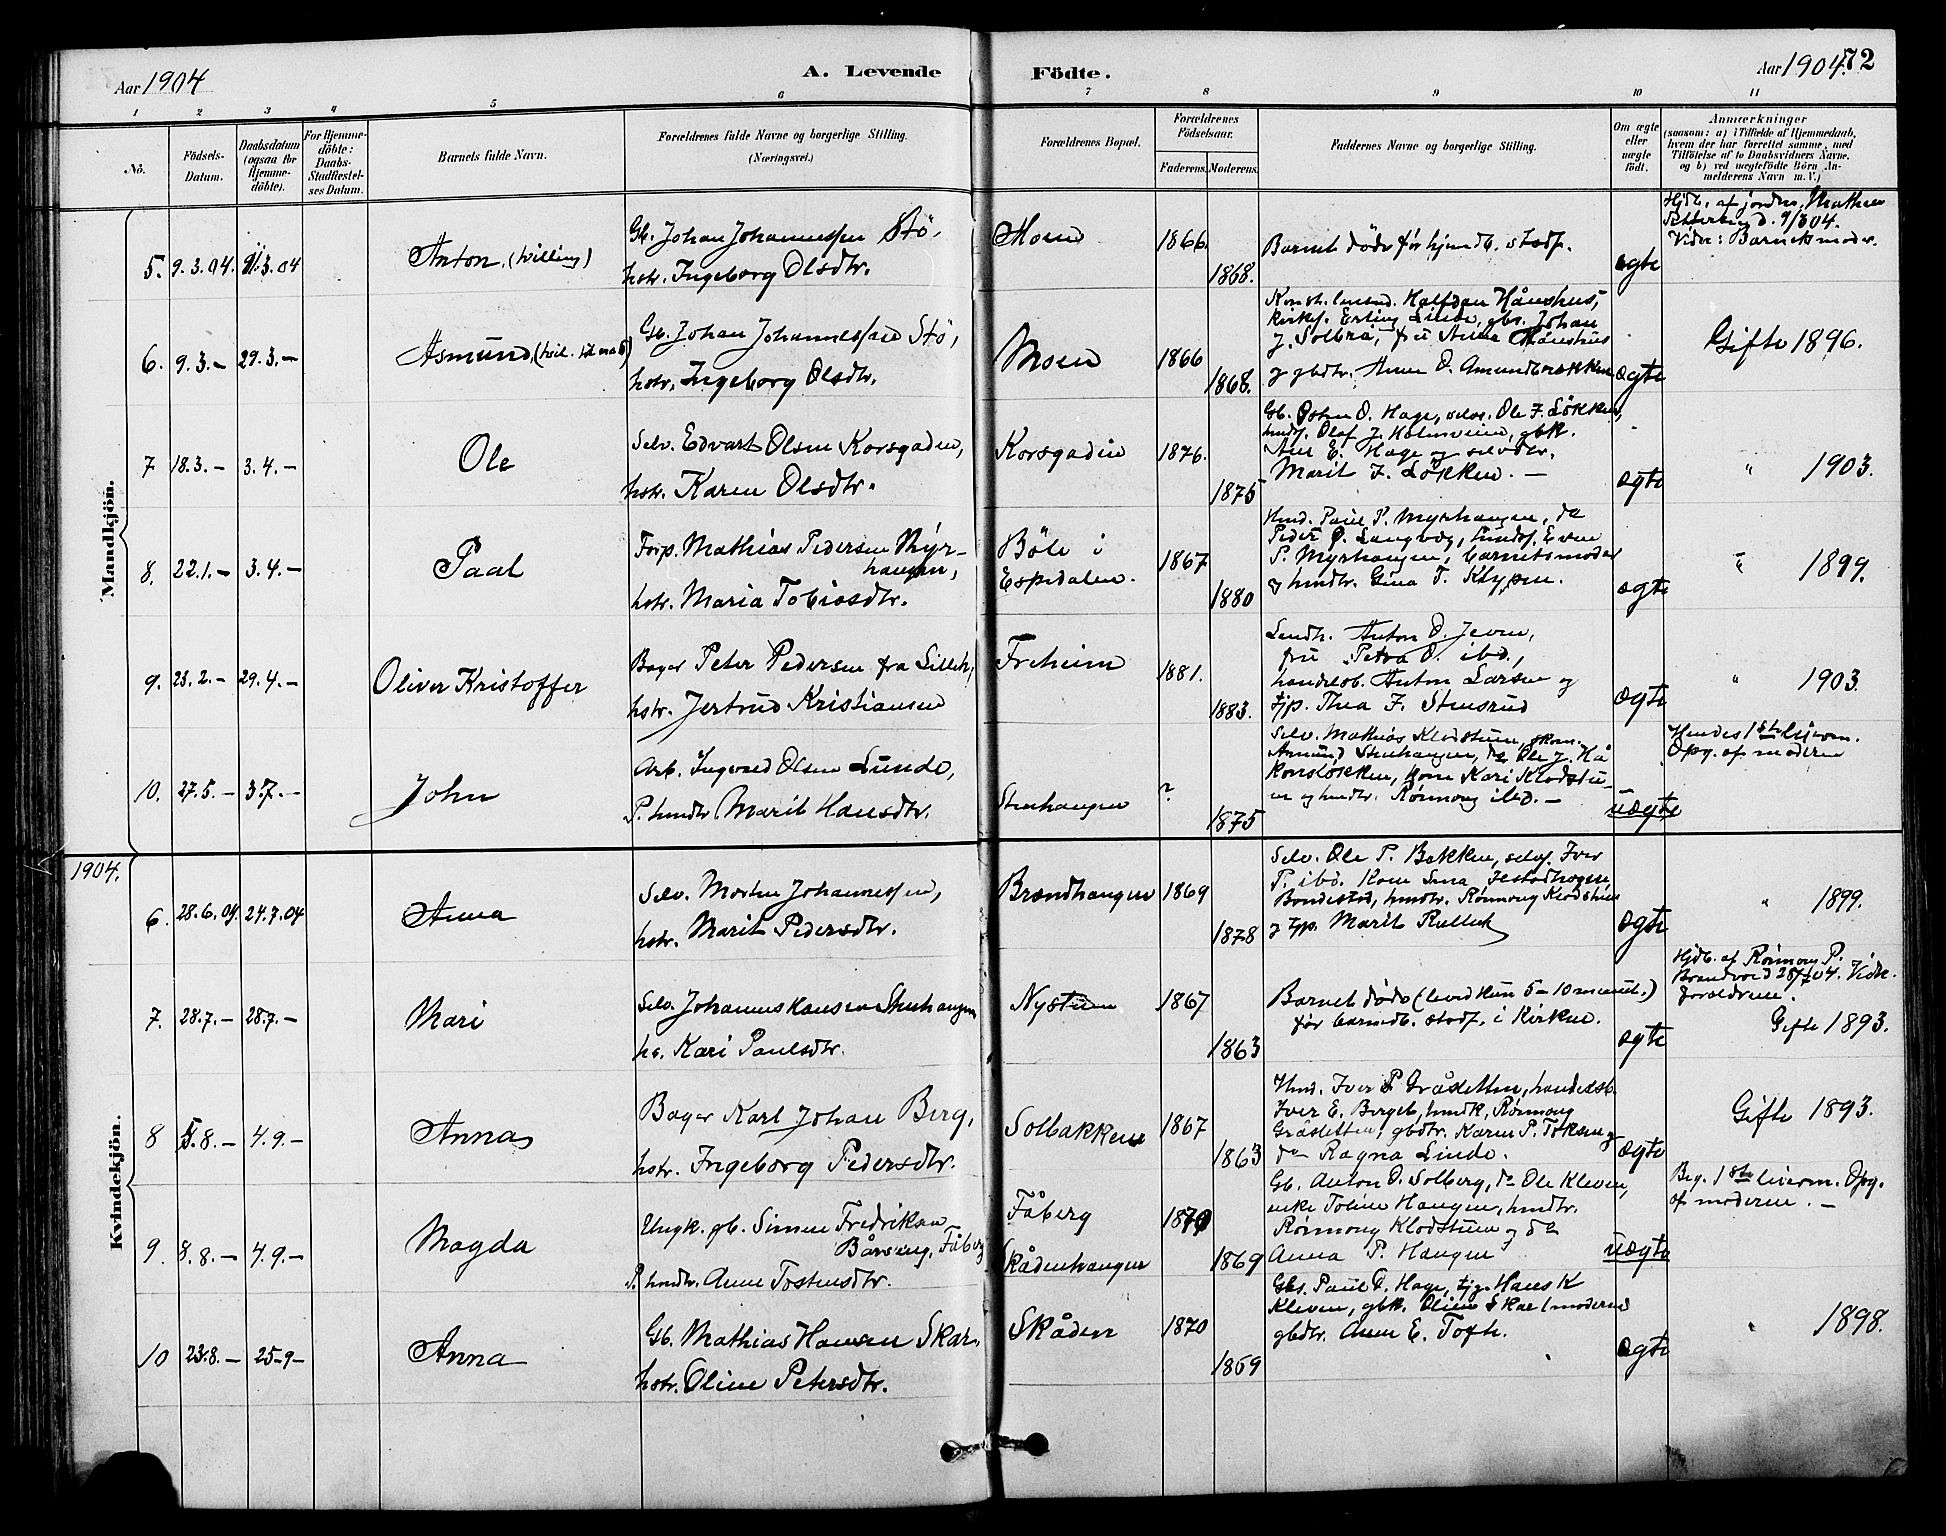 Aar 1904
A. Levende Födte.
Aar 1904. 72
1 2 3 4 5 6 7 8 9 10 11
No.
Födsels-Datum.
Daabsdatum (ogsaa for Hjemme-döbte).
For Hjemme-döbte: Daabs-Stadfæstel-ses Datum.
Barnets fulde Navn.
Forældrenes fulde Navne og borgerlige Stilling. (Næringsvei.)
Forældrenes Bopæl.
Forældrenes Födselsaar.
Faderens. Moderens.
Faddernes Navne og borgerlige Stilling.
Om ægte eller uægte födt.
Anmærkninger
(saasom: a) i Tilfælde af Hjemmedaab, hvem der har forrettet samme, med Tilföielse af to Daabsvidners Navne, og b) ved uægtefödte Börn An-melderens Navn m. V.)
Mandkjön.
5. 9.3.04. 3.04 Anton (tvilling)
Gb. Johan Johannessen Stö,
hstr. Ingeborg Olsdtr.
Moen 1866 1868.
Barnet döde før hjemdb. stadf.
ægte
Hjdb. af jordm. Mathea
d. 9/3 04.
Vidn: Barnets moder.
6. 9.3.— 29.3.— Asmund
Gb. Johan Johannessen Stö,
hstr. Ingeborg Olsdtr.
Moen 1866 1868.
Halfdan Hånshus,
kirkes. Erling Linde, gbs. Johan
J. Solbrå, fru Anna Hånshus
og gbdtr. Anne O. Amundbrækken
ægte
Gifte 1896.
7 18.3.— 3.4.— Ole
Selv. Edvart Olsen Korsgaden,
hstr. Karen Olsdtr.
Korsgaden 1876. 1875
Gb. John O. Hage, selvs. Ole J. Løkken,
Olaf J. Holmveien, gbk.
E. Hage og selvdtr.
Marit J. Løkken. —
ægte
" 1903.
8. 22.1.— 3.4.— Paal
Forp. Mathias Pedersen Myr-
haugen,
hstr. Maria Tobiasdtr.
Böle i
Espedalen. 1867 1880
Hmd. Paul P. Myrhaugen, do
Peder O. Langvæg, hmds. Even
P. Myrhaugen, barnets moder
og hmdtr. Gina T. Klypen.
ægte
" 1899.
9. 23.2.— 29.4.— Oliver Kristoffer
Bager Peter Pedersen fra Lilleh,
hstr. Jertrud Kristiansen
Freheim 1881. 1883.
Landh. Anton O. Jevne,
fru Petra O. ibd.,
handelsb. Anton Larsen og
tjp. Thea F. Stensrud
ægte
" 1903.
10. 27.5.— 3.7.— John
Arb. Ingvald Olsen Lunde,
P. hmdtr. Marit Hansdtr.
Stenhaugen ? 1875
Selv. Mathias Klodstuen, skom.
Amund Stenhaugen, do Ole J. Hå
konsløkken, kone Kari Klodstu-
en og hmdtr. Rønnoug ibd. —
uægte
Hendes 1ste leierm.
Opg. af moderen
1904.
Kvindekjön.
6. 28.6.04. 24.7.04 Anna
Selv. Morten Johannessen,
hstr. Marit Pedersdtr.
Brændhaugen 1869 1878
Selv. Ole P. Bakken, selvs. Iver
P. ibd. Kone
Bondestad, hmdtr. Rønnoug Klodstuen
og tjp. Marit
ægte
" 1899.
7. 28.7.— 28.7.— Mari
Selv. Johannes Hansen Stenhaugen
hs. Kari Paulsdtr.
Nystuen 1867 1863
Barnet døde (levde kun 5-10 minut.)
før barnedb. stadf. i Kirken.
ægte
Hjdb. af Rønnoug P.
28/7 04. Vidn.
forældrene.
Gifte 1893.
8 5.8.— 4.9.— Anna
Bager Karl Johan Berg,
hstr. Ingeborg Pedersdtr.
Solbakken 1867 1863
Hmd. Iver P Gråsletten, handelsb.
Iver E. Berget, hmdk. Rønnoug
Gråsletten, gbdtr. Karen P. Toksen og
do Ragna Linde.
ægte
Gifte 1893.
9. 8.8.— 4.9.— Magda
Ungk. gb. Simen Fredriksen
Fåberg
P. hmdtr. Anne Tostensdtr.
Fåberg
Skådenhaugen 1870 1869
Gb. Anton O. Solberg, do Ole Kleven,
enke Toline Haugen, hmdtr.
Rønnoug Klodstuen og do
Anna P. Haugen
uægte
Beg. 1ste leierm. Opg.
af moderen. —
10 23.8.— 25.9— Anna
Gb. Mathias Hansen Skar,
hstr. Oline Petersdtr.
Skåden 1870 1869
Gbs. Paul O. Hage, tjg. Hans K
Kleven, gbk. Oline Skar (moderen)
gbdtr. Anne E. Tofte.
ægte
" 1898.